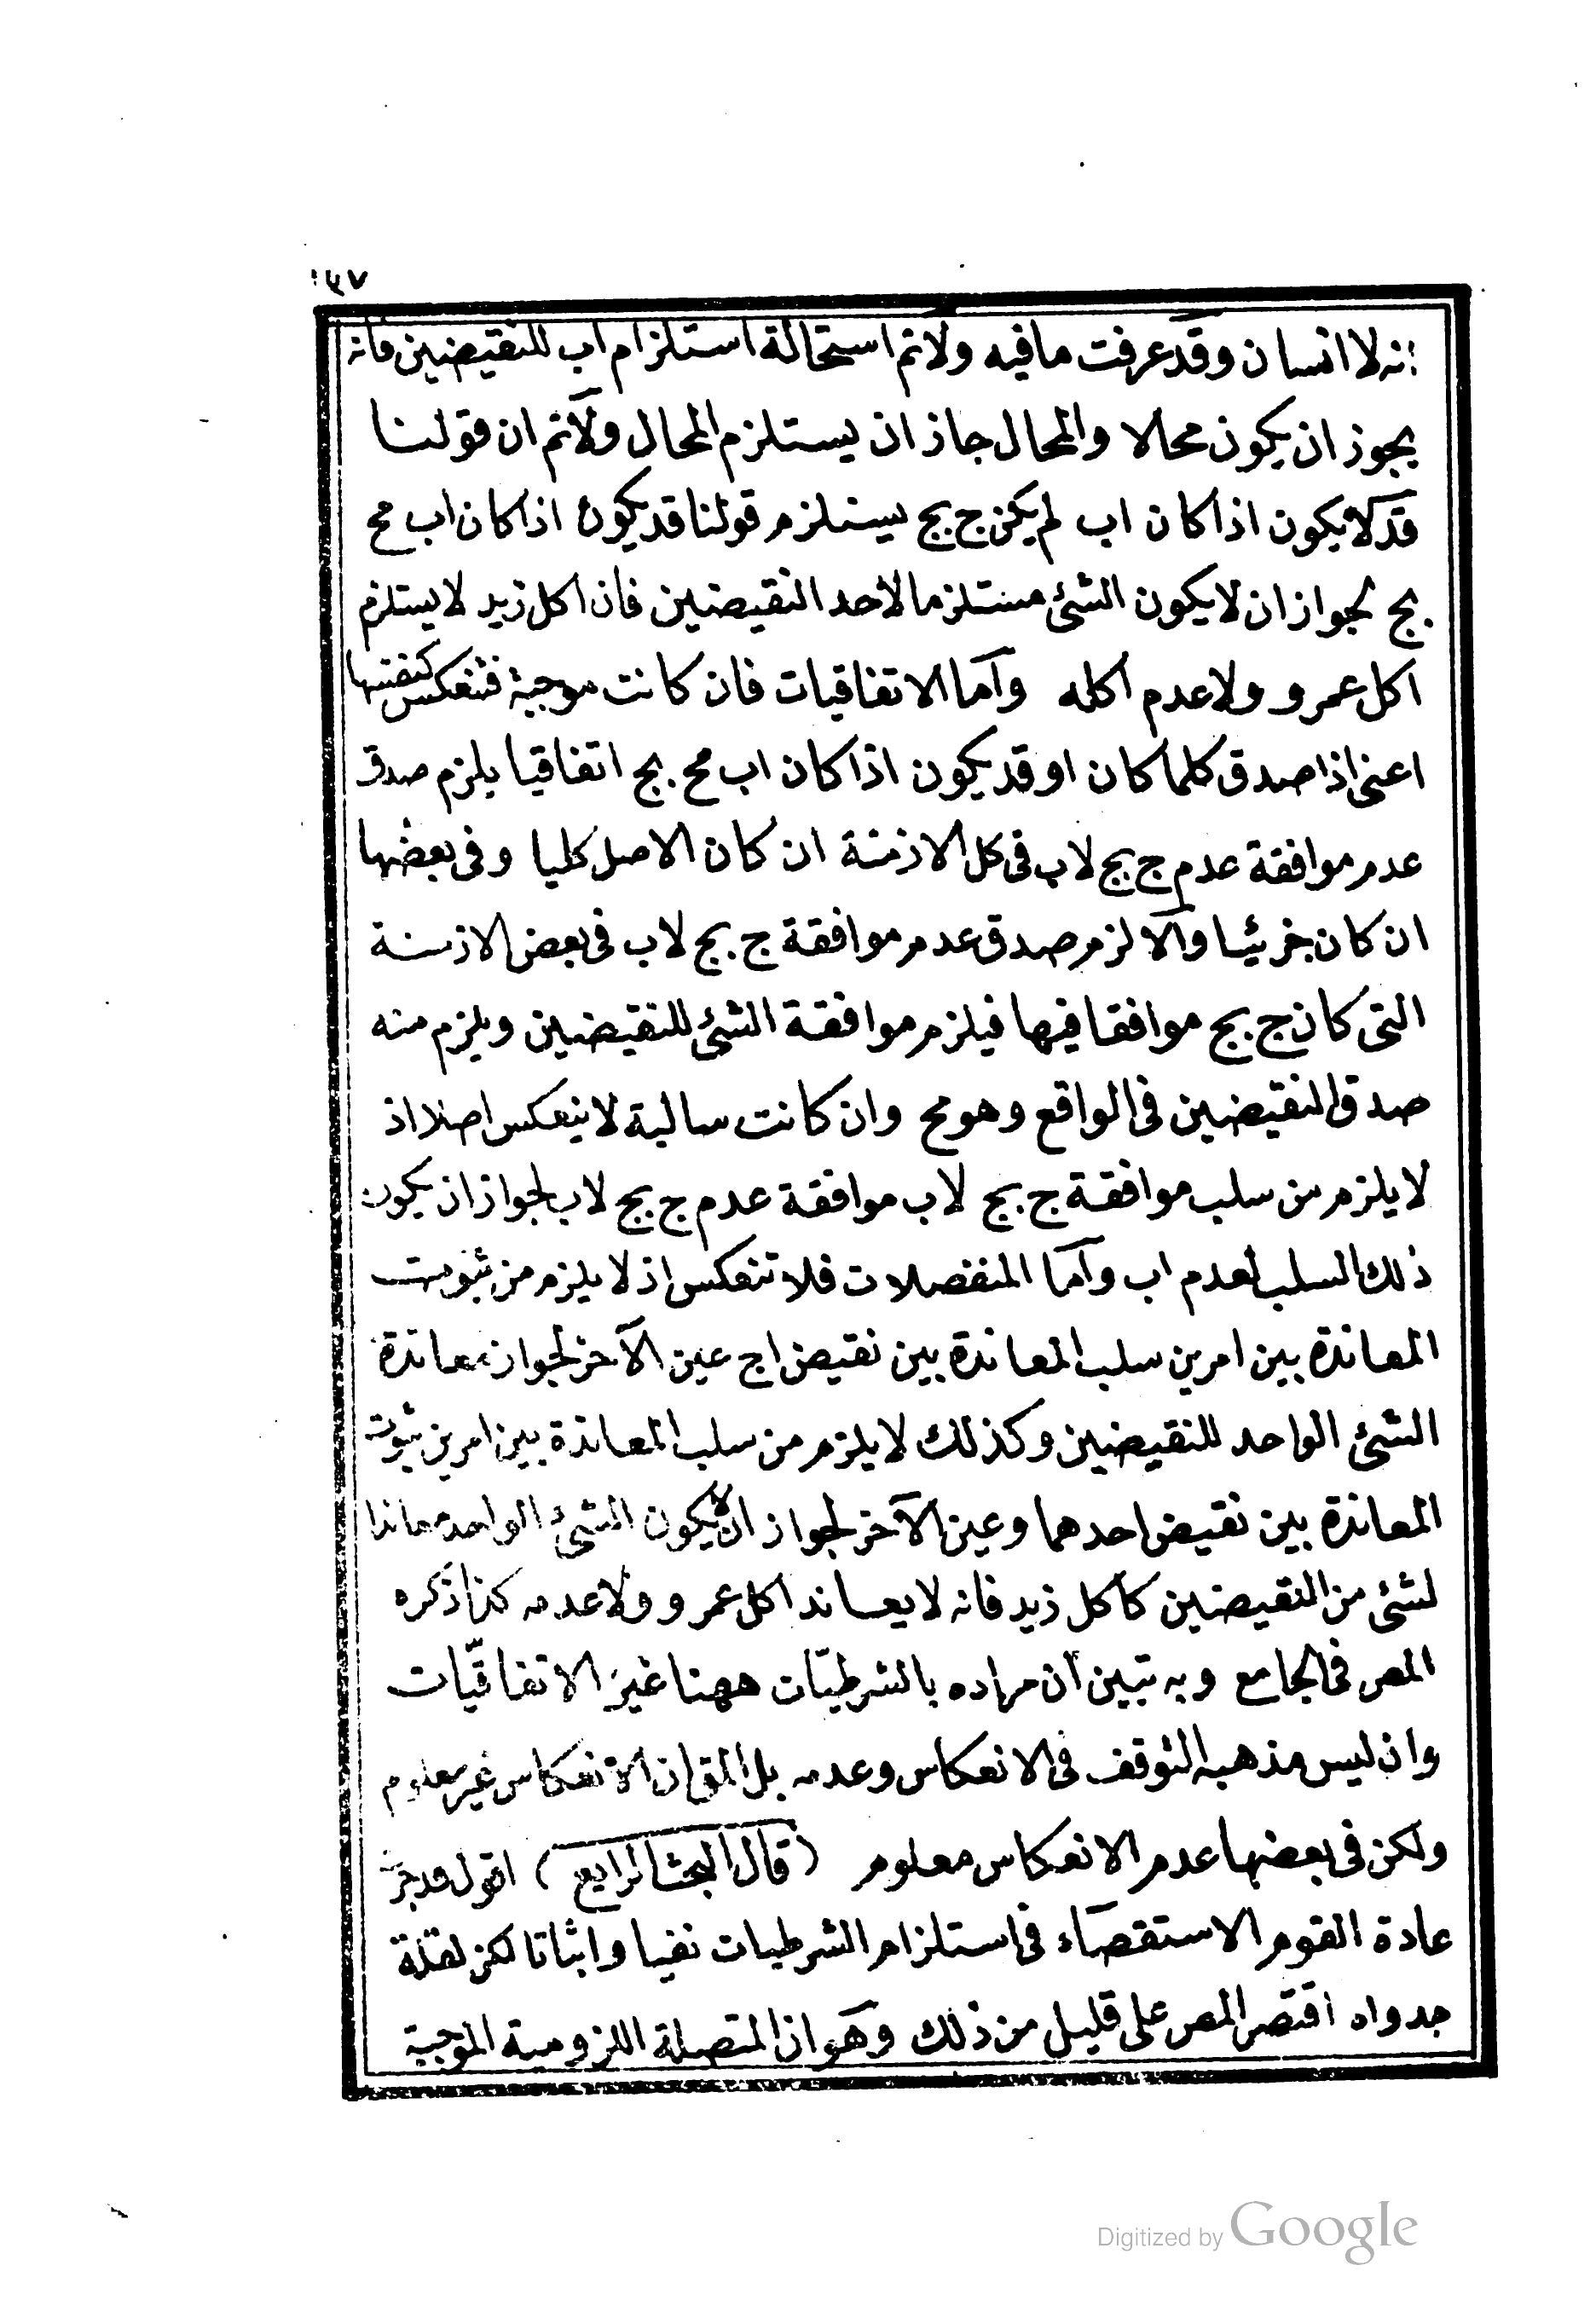 ١٤٧
انه لا انسان وقد عرفت ما فيه ولانم استحالة استلزام اب للنقيضين فانه
يجوز ان يكون محالا والمحال جاز ان يستلزم المحال ولانم ان قولنا
قد لا يكون اذا كان اب لم يكن ج بج يستلزم قولنا قد يكون اذا كان اب مح
بج لجواز ان لا يكون الشئ مستلزما لاحد النقيضين فان اكل زيد لا يستلزم
اكل عمرو ولا عدم اكله واما الاتفاقيات فان كانت موجبة فتنعكس كنفسها
اعنى اذا صدق كلما كان او قد يكون اذا كان اب مح بج اتفاقيا يلزم صدق
عدم موافقة عدم ج بج لاب فى كل الازمنة ان كان الاصل كليا وفى بعضها
ان كان جزئيا والا لزم صدق عدم موافقة ج بج لاب فى بعض الازمنة
التى كان ج بج موافقا فيها فيلزم موافقة الشئ للنقيضين ويلزم منه
صدق النقيضين فى الواقع وهو مح وان كانت سالبة لا ينعكس اصلا اذ
لا يلزم من سلب موافقة ج بج لاب موافقة عدم ج بج لاب لجواز ان يكون
ذلك السلب لعدم اب واما المنفصلات فلا تنعكس اذ لا يلزم من ثبوت
المعاندة بين امرين سلب المعاندة بين نقيض اج عين الآخر لجواز معاندة
الشئ الواحد للنقيضين وكذلك لا يلزم من سلب المعاندة بين امرين ثبوت
المعاندة بين نقيض احدهما وعين الآخر لجواز ان لا يكون الشئ الواحد معاندا
لشئ من النقيضين كاكل زيد فانه لا يعاند اكل عمرو ولا عدمه كذا ذكره
المص فى الجامع وبه تبين ان مراده بالشرطيّات ههنا غير الاتفاقيّات
وان ليس مذهبه التوقف فى الانعكاس وعدمه بل المق ان الانعكاس غير معلوم
ولكن فى بعضها عدم الانعكاس معلوم (قال البحث الرابع) اقول قد جرت
عادة القوم الاستقصاء فى استلزام الشرطيات نفيا واثباتا لكن لقلة
جدواه اقتصر المص على قليل من ذلك وهو ان المتصلة اللزومية الموجبة
Digitized by Google